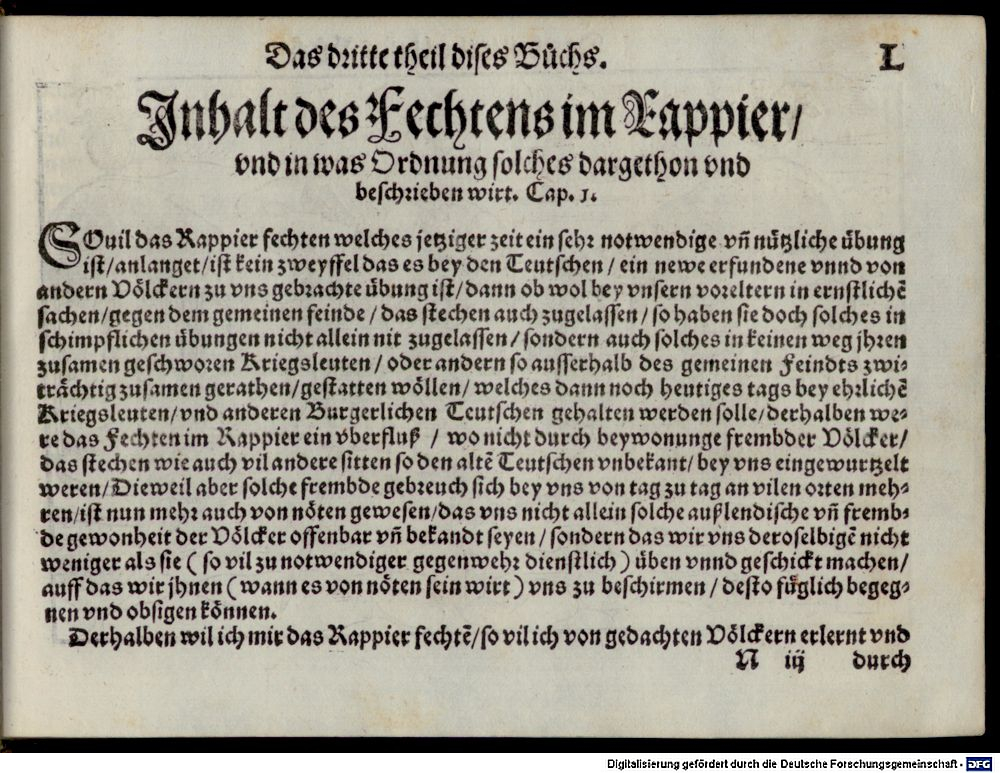 Das dritte theil dises Bůchs.
L
Inhalt des Fechtens im Rappier/
vnd in was Ordnung solches dargethon vnd
beschrieben wirt. Cap. 1.
SOuil das Rappier fechten welches jetziger zeit ein sehr notwendige vñ nützliche übung
ist/anlanget/ist kein zweyffel das es bey den Teutschen / ein newe erfundene vnnd von
andern Völckern zu vns gebrachte übung ist/dann ob wol bey vnsern voreltern in ernstlichẽ
sachen/gegen dem gemeinen feinde / das stechen auch zugelassen / so haben sie doch solches in
schimpflichen übungen nicht allein nit zugelassen / sondern auch solches in keinen weg jhren
zusamen geschworen Kriegsleuten / oder andern so ausserhalb des gemeinen Feindts zwi⸗
trächtig zusamen gerathen/gestatten wöllen / welches dann noch heutiges tags bey ehrlichẽ
Kriegsleuten/vnd anderen Burgerlichen Teutschen gehalten werden solle/derhalben we⸗
re das Fechten im Rappier ein vberfluß / wo nicht durch beywonunge frembder Völcker/
das stechen wie auch vil andere sitten so den altẽ Teutschen vnbekant/ bey vns eingewurtzelt
weren/Dieweil aber solche frembde gebreuch sich bey vns von tag zu tag an vilen orten meh⸗
ren/ist nun mehr auch von nöten gewesen/das vns nicht allein solche außlendische vñ fremb⸗
de gewonheit der Völcker offenbar vñ bekandt seyen / sondern das wir vns deroselbigẽ nicht
weniger als sie ( so vil zu notwendiger gegenwehr dienstlich ) üben vnnd geschickt machen/
auff das wir jhnen ( wann es von nöten sein wirt ) vns zu beschirmen / desto füglich begeg⸗
nen vnd obsigen können.
Derhalben wil ich mir das Rappier fechtẽ/so vil ich von gedachten Völckern erlernt vnd
N iij durch
Digitalisierung gefördert durch die Deutsche Forschungsgemeinschaft - DFG